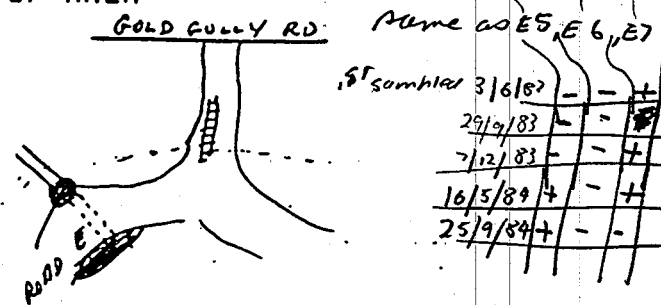 GOLD GULLY RD
same as E5, E6, E7
1st sampled 3/6/83 - - +
29/9/83 - -
7/12/83 - - +
16/5/84 + - +
25/9/84 + - -
E
ROAD